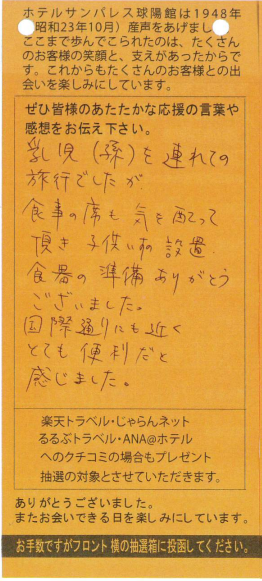 ホテルサンパレス球陽館は1948年
(昭和23年10月）産声をあげまし
ここまで歩んでこられたのは、たくさん
のお客様の笑顔と、支えがあったからで
す。これからもたくさんのお客様との出
会いを楽しみにしています。
ぜひ皆様のあたたかな応援の言葉や
感想をお伝え下さい。
乳児(孫)を連れての
旅行でしたが
食事の席も気を配って
頂き子供いすの設置、
食器の準備ありがとう
ございました。
国際通りにも近く
とても便利だと
感じました。
楽天トラベル・じゃらんネット
るるぶトラベル・ANA@ホテル
へのクチコミの場合もプレゼント
抽選の対象とさせていただきます。
ありがとうございました。
またお会いできる日を楽しみにしています。
お手数ですがフロント横の抽選箱に投函してください。